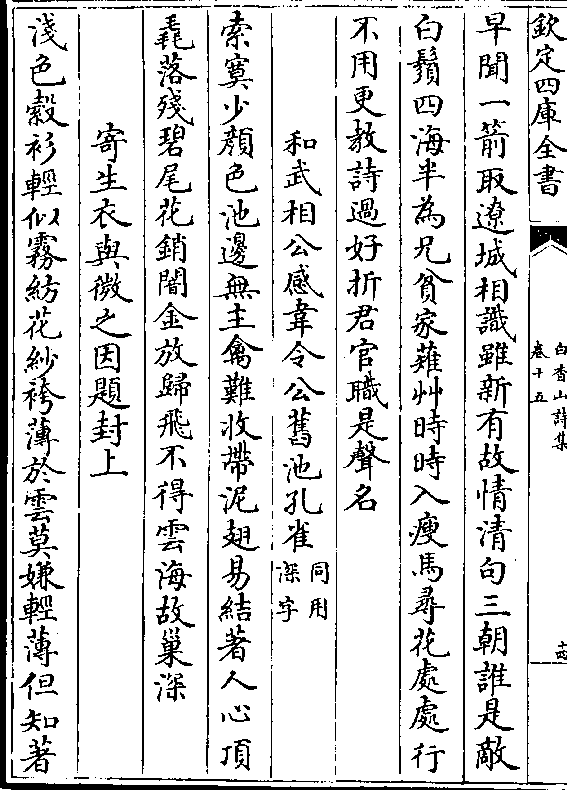 欽定四庫全書
白香山詩集
卷十五
十四
早聞一箭取遼城相識雖新有故情清句三朝誰是敵
白鬚四海半為兄貧家薙艸時時入瘦馬尋花處處行
不用更教詩過好折君官職是聲名
和武相公感韋令公舊池孔雀同用
深字
索寞少顔色池邊無主禽難收帶泥翅易結著人心頂
毳落殘碧尾花銷闇金放歸飛不得雲海故巢深
寄生衣與微之因題封上
淺色縠衫輕似霧紡花紗袴薄於雲莫嫌輕薄但知著